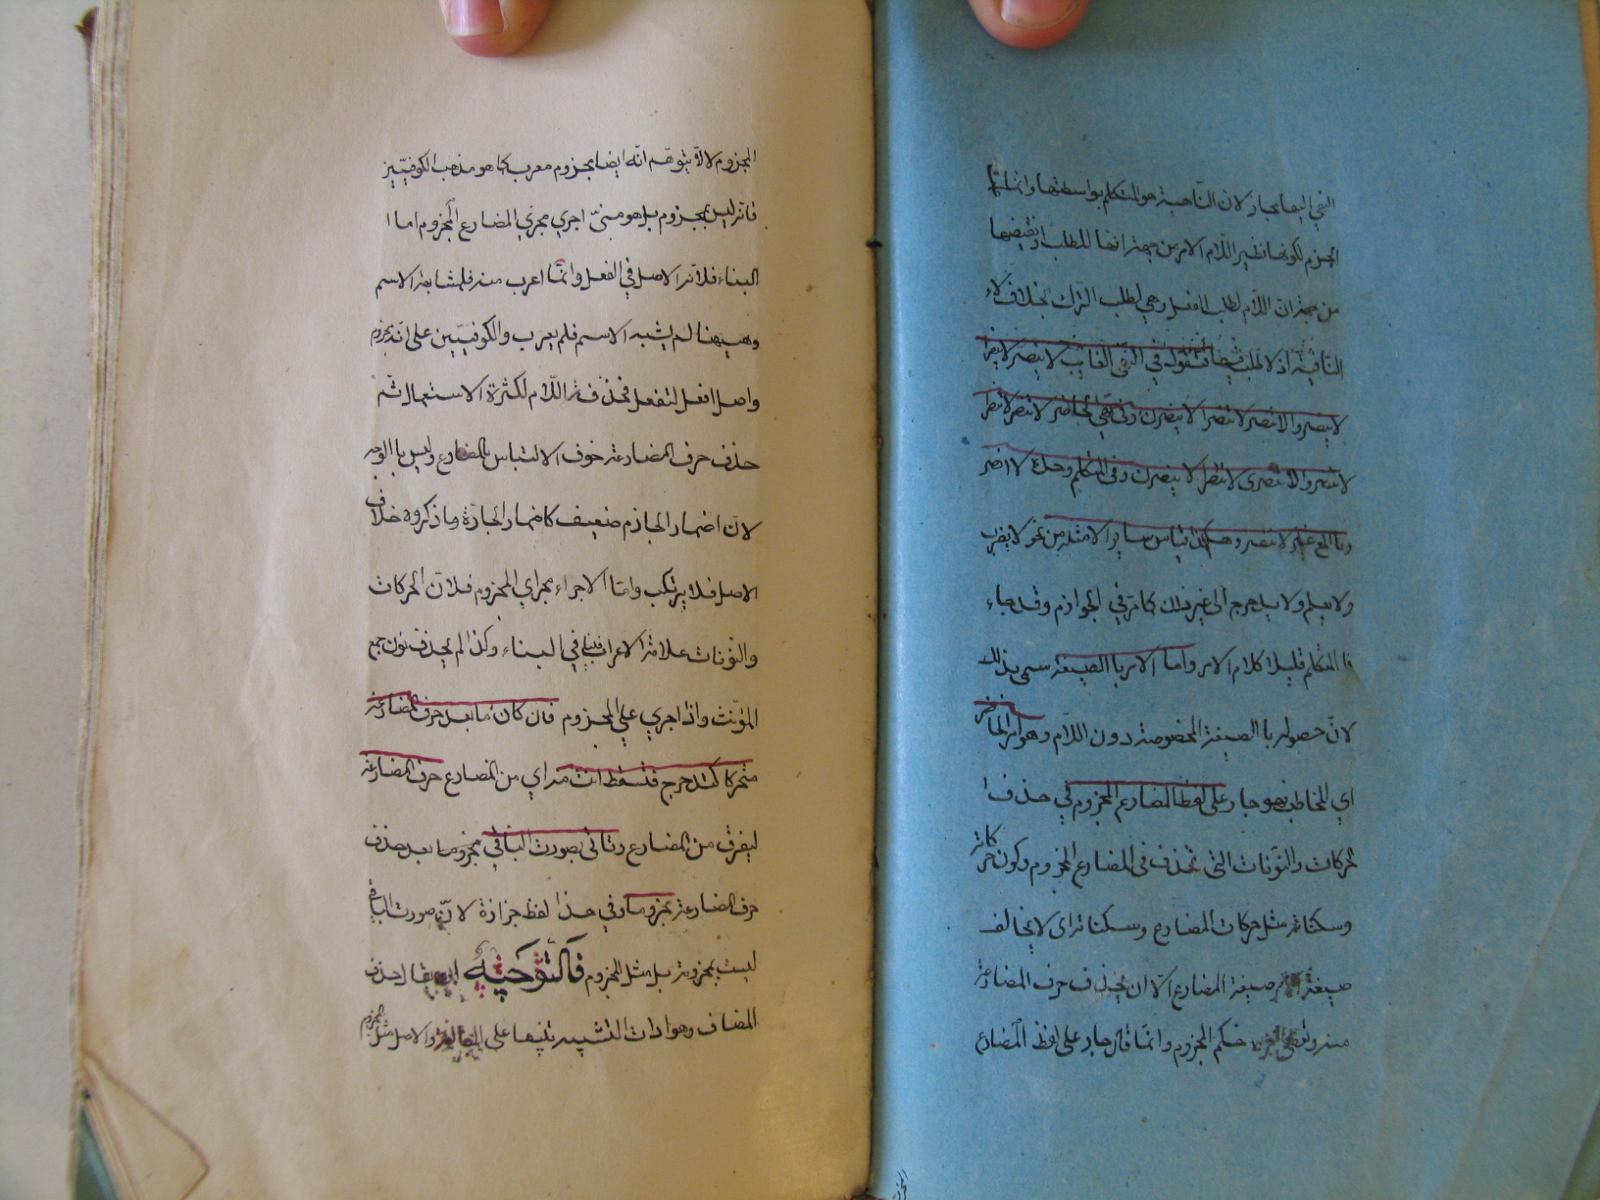 النهي اليها مجاز لان الناهية هو المتكلم بواسطتها وانما
الجزم لكونها نظير اللام الامر من جهة انها للطلب او نقيضها
من جهة ان اللام لطلب الفعل وهي لطلب الترك بخلاف لاء
النافية اذ لا طلب فيها فتقول في النهي الغايب لا ينصر لا ينصرا
لا ينصروا لا تنصر لا تنصرا لا ينصرن وفي نهي الحاضر لا تنصر لا تنصرا
لا تنصروا لا تنصري لا تنصرا لا تنصرن وفي المتكلم وحده لا انصر
ومع غيره لا ننصر وهكذا قياس ساير الامثلة من نحو لا يضرب
ولا يعلم ولا يدحرج الى غير ذلك كما مر في الجوازم وقد جاء
فا المتكلم قليلا كلام الامر واما الامر با الصيغة سمى بذلك
لان حصوله با الصيغة المخصوصة دون اللام وهو امر الحاضر
اي المخاطب فهو جار على لفظ المضارع المجزوم في حذف ا
لحركات والنونات التي تحذف في المضارع المجزوم وكون حركاته
وسكناته مثل حركات المضارع وسكناته اى لا يخالف
صيغة الامر صيغة المضارع الا ان يحذف حرف المضارعة
منه وتعطى اخره حكم المجزوم وانما قال جار على لفظ المضارع
المجزوم لالا يتوهم انه ايضا مجزوم معرب كما هو مذهب الكوفيين
فانه ليس بمجزوم بل هو مبنى اجري مجرى المضارع المجزوم اما ا
البناء فلانه الاصل في الفعل وانما اعرب منه فلمشابهة الاسم
وهيهنا لم يشبه الاسم فلم يعرب والكوفيين على انه مجزوم
واصل افعل لتفعل فحذفت اللام لكثرة الاستعمال ثم
حذف حرف المضارعة خوف الالتباس بالمضارع وليس با الوجه
لان اضمار الجازم ضعيف كاضمار الجارة وما ذكروه خلاف
الاصل فلا يرتكب واما الاجراء مجراي المجزوم فلان الحركات
والنونات علامة الاعراب فينافي البناء وكذا لم يحذف نون جمع
المؤنث واذا اجري على المجزوم فان كان ما بعد حرف المضارعة
متحركا كتدحرج فتسقط انت منه اي من المضارع حرف المضارعة
ليفرق من المضارع وتاتى بصورت الباقي مجزوما بعد حذف
حرف المضارعة مجزوما وفي هذا لفظ حزازة لان صورت الباقي
ليست بمجزومة بل مثل المجزوم فالتوجيه ان يقال حذف
المضاف وهو ادات التشبيه تنبيها على المبالغة والاصل مثل المجزوم